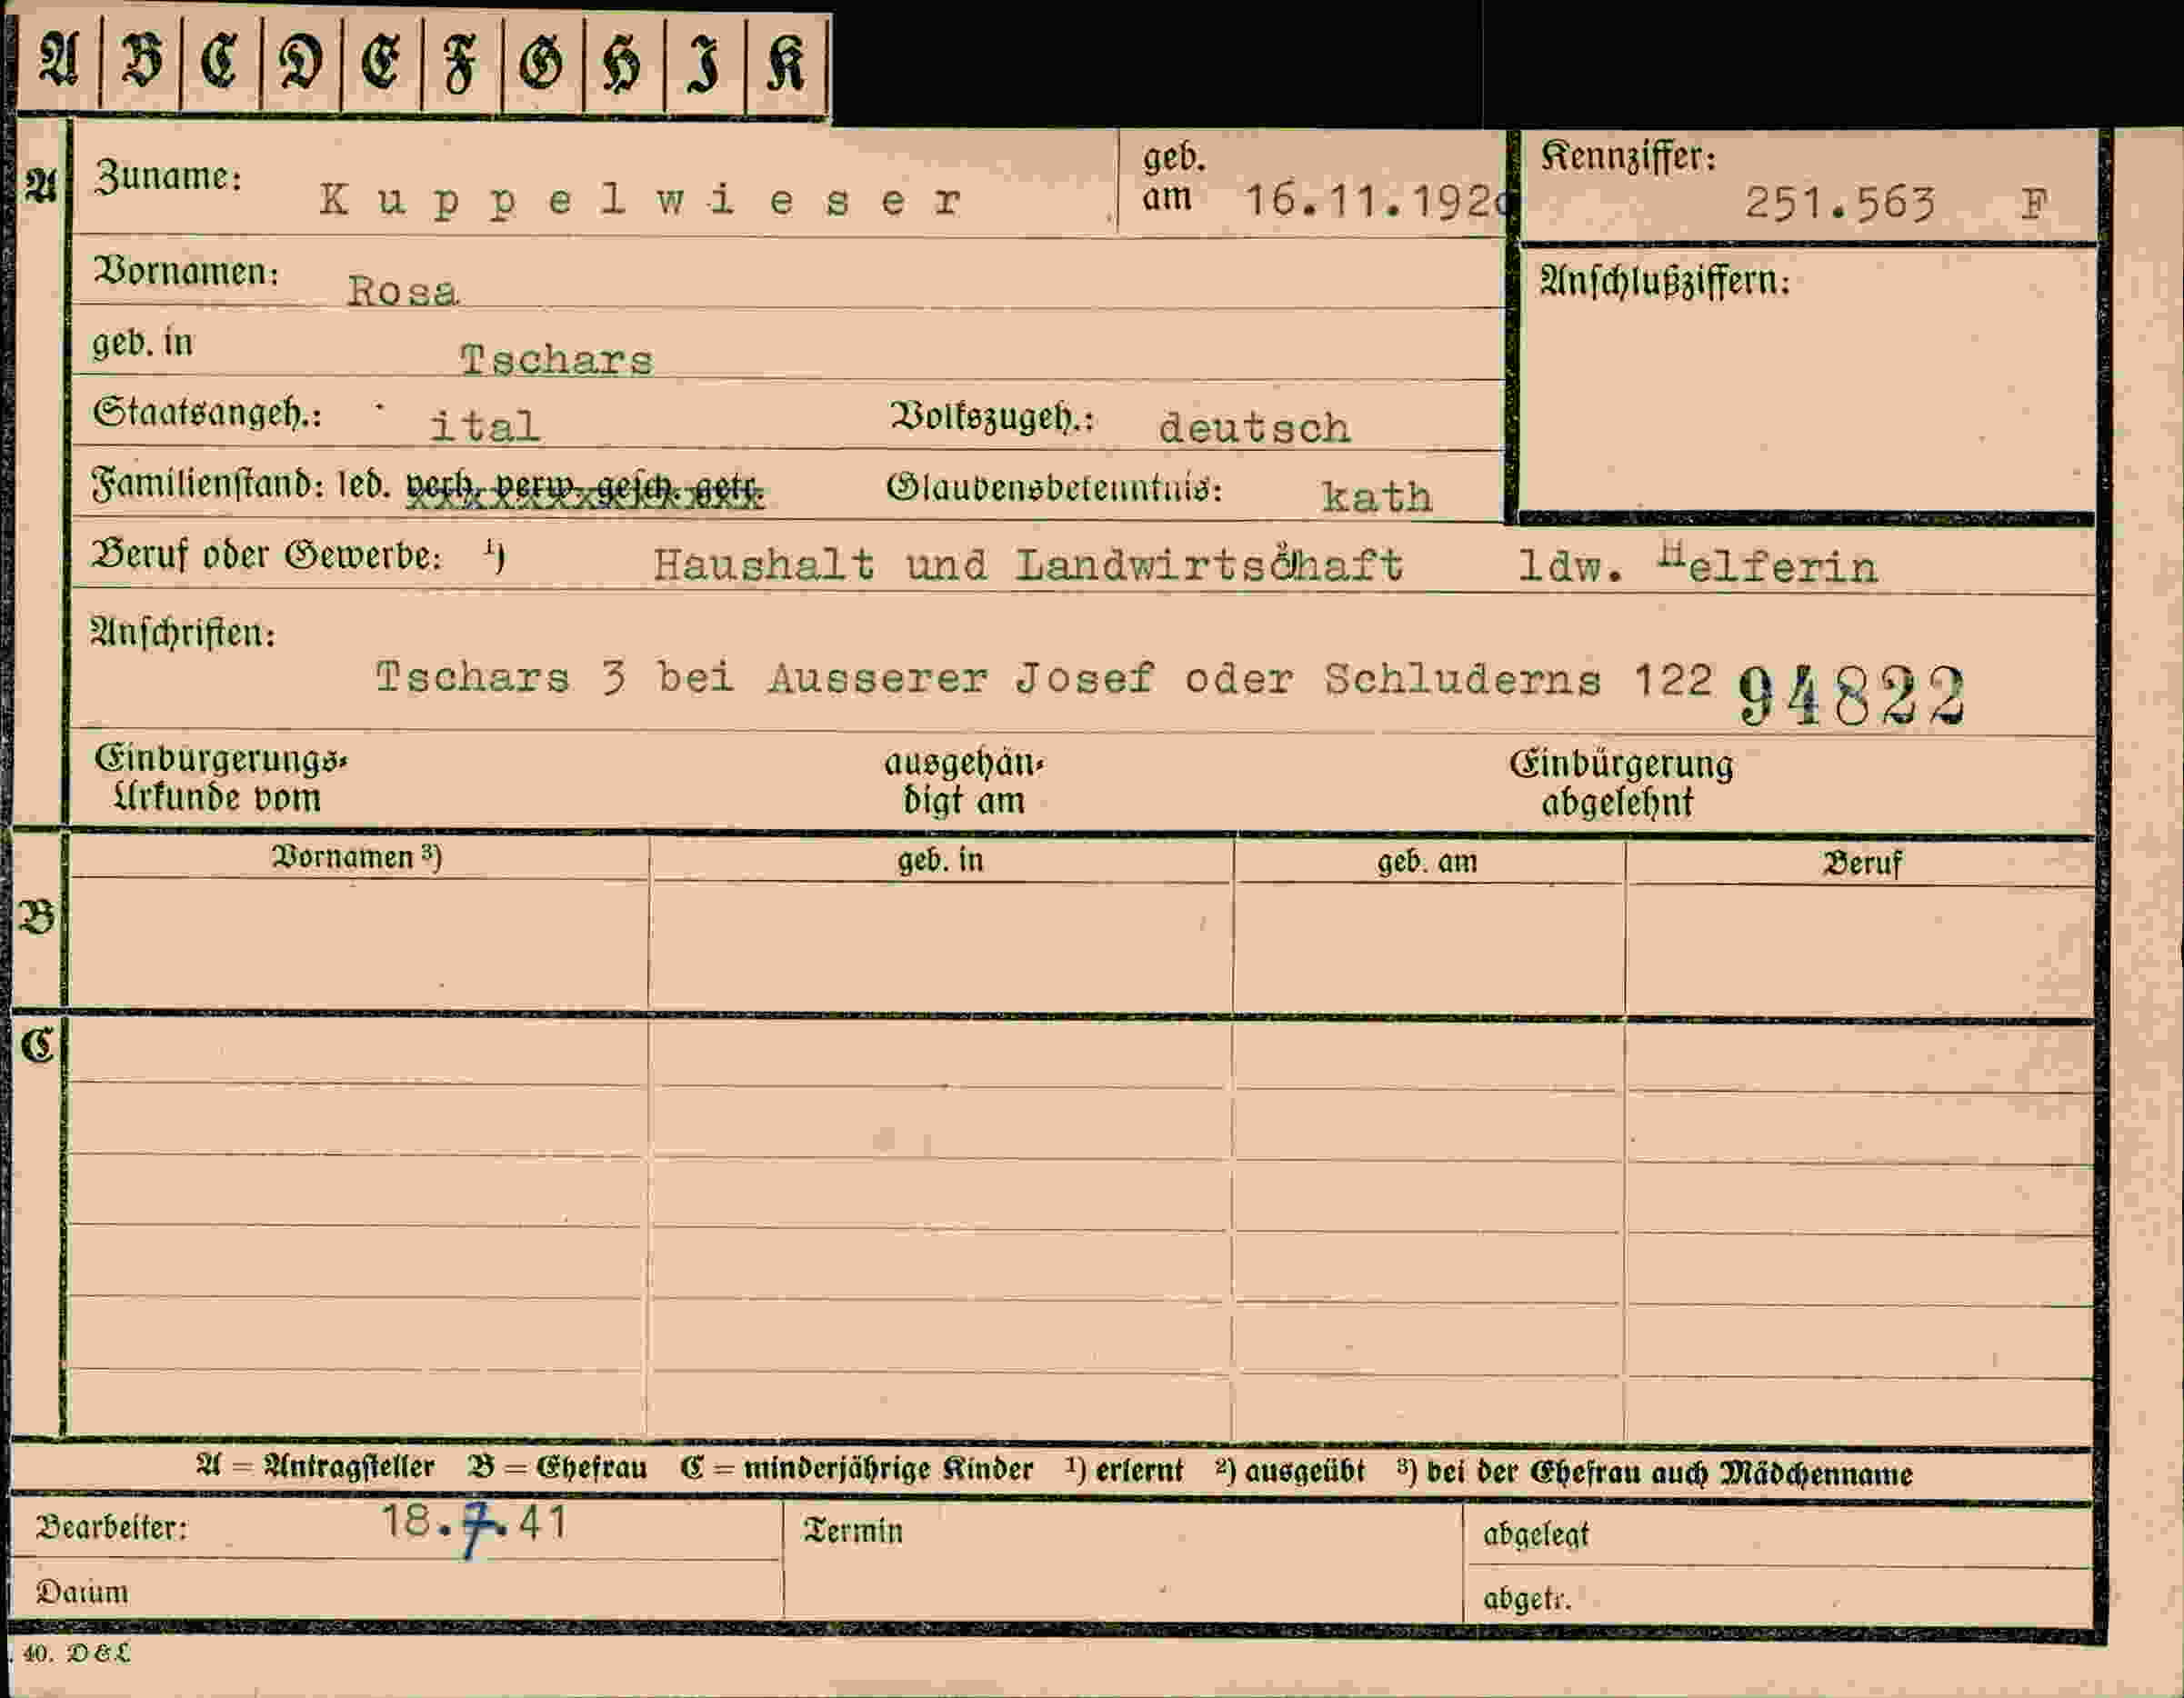 A B C D E F G H I K
A Zuname: Kuppelwieser geb. am 16.11.192 Kennziffer: 251.563 F
Vornamen: Rosa Anschlußziffern:
geb. in Tschars
Staatsangeh.: ital Volkszugeh.: deutsch
Familienstand: led. verh. verw. gesch. getr. Glaubensbekenntnis: kath
Beruf oder Gewerbe: 1) Haushalt und Landwirtschaft ldw. Helferin
Anschriften:
Tschars 3 bei Ausserer Josef oder Schluderns 122 94822
Einbürgerungs- ausgehän- Einbürgerung
Urkunde vom digt am abgelehnt
Vornamen 3) geb. in geb. am Beruf
B
C
A = Antragsteller B = Ehefrau C = minderjährige Kinder 1) erlernt 2) ausgeübt 3) bei der Ehefrau auch Mädchenname
Bearbeiter: 18.7.41 Termin abgelegt
Datum abgetr.
40. D&L